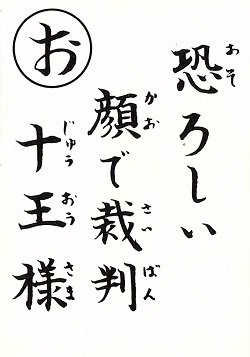 お
恐ろしい
顔で裁判
十王様
おそ
かお
さい
ばん
じゅう
おう
さま